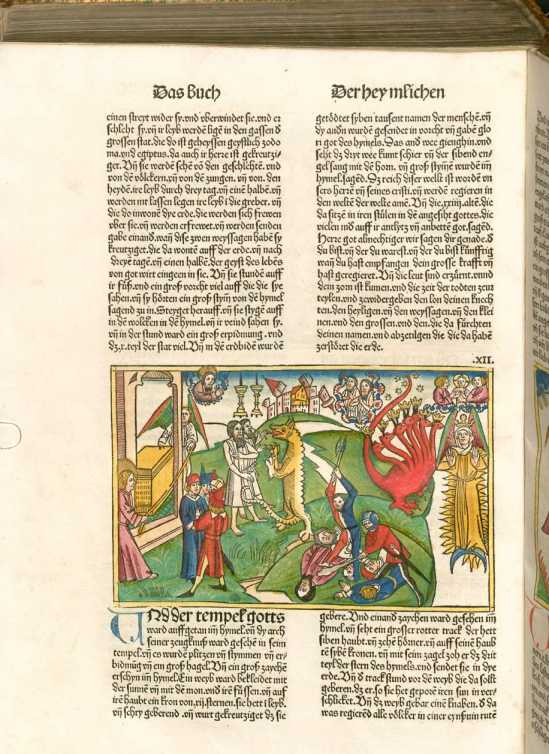 Das Buch
Der heymlichen
einen streyt wider sy.vnd vberwindet sie.vnd er
schlecht sy.vñ ir leyb werdē ligē in den gassen d̕
grossen stat.die do ist geheyssen geystlich zodo
ma.vnd egiptus.da auch ir herre ist gekreutzi⸗
get. Vñ sie werdē sehē vō den geschlechtē.vnd
von dē völckern.vñ von dē zungen.vñ von.den
heydē.ire leyb durch drey tag.vñ eine halbē.vñ
werden nit lassen legen ire leyb ī die greber. vñ
die do inwonē dye erde.die werden sich frewen
vber sie.vñ werden erfrewet.vñ werden senden
gabe einand̕.wañ dise zwen weyssagen habē sy
kreutziget.die da wontē auff der erde.vñ nach
dreyē tagē.vñ einen halbē.der geyst des lebēs
von got wirt eingeen in sie. Vñ sie stundē auff
ir füß.vnd ein groß vorcht viel auff die die sye
sahen.vñ sy hörten ein groß stym̄ von dē hymel
sagend zu in.Steyget herauff.vñ sie stygē auff
in dē wolcken in dē hymel.vñ ir veind sahen sy.
vñ in der stund ward ein groß erpidmung .vnd
dz.x.teyl der stat viel.Vñ in dē erdbidē wurdē
getödtet syben tausent namen der menschē.vñ
dy andn̄ wurdē gesendet in vorcht vñ gabē glo
ri got des hymels.Das and̕ wee gieng hin.vnd
seht dz dryt wee kumt schier vñ der sibend en⸗
gel sang mit dē horn. vñ groß stym̄ē wurdē im̄
hymel.sagēd. Dz reich diser welt ist wordē vn
sers herrē vñ seines cristi.vñ werdē regieren in
den weltē der welte amē. Vñ die.xxiiij.altē.die
da sitzē in iren stülen in dē angesiht gottes.die
vielen nid̕ auff ir antlytz vñ anbettē got.sagēd.
Herre got almechtiger wir sagen dir genade.d̕
du bist.vñ der du warest.vñ der du bist künfftig
wañ du hast empfangen dein grosse krafft vñ
hast geregieret. Vñ die leut sind erzürnt.vnnd
dein zorn ist kumen.vnd die zeit der todten zeur
teylen.vnd zewid̕geben den lon deinen knech
ten.den heyligen.vñ den weyssagen.vñ den klei
nen.vnd den grossen.vnd den.die da fürchten
deinen namen.vnd abzetilgen die die da habē
zerstöret die erde.
.XII.
VNd der tempel gotts
ward auffgetan im̄ hymel.vñ dy arch
seiner zeugknuß ward gesehē in seim
tempel.vñ es wurdē plitzen vñ stymmen vñ er⸗
bidmūg vñ ein groß hagel.Vñ ein groß zaychē
erschyn im̄ hymel.ein weyb ward bekleidet mit
der sunnē vñ mit dē mon.vnd irē füssen.vñ auf
irē haubt ein kron von.xij.sternen.sie het ī leyb.
vñ schry geberend .vñ wurt gekreutziget dz sie
gebere.Vnd einand̕ zaychen ward gesehen im̄
hymel.vñ seht ein grosser rotter track der hett
siben haubt.vñ zehē hörner.vñ auff seinē haub
tē sybē kronen.vñ mit seim zagel zoh er dz drit
teyl der stern des hymels.vnd sendet sie in dye
erde. Vñ d̕ track stund vor dē weyb die da solt
geberen.dz er.so sie het geporē iren sun in ver⸗
schlicket. Vñ dz weyb gebar einē knaben.d̕ da
was regierēd alle völcker in einer eyn̄sin rutē